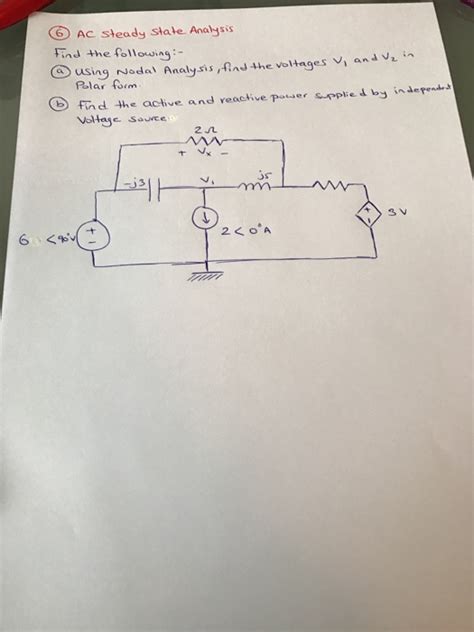 ⑥ AC Steady State Analysis
Find the following:-
ⓐ Using Nodal Analysis, find the voltages V₁ and V₂ in
Polar form
ⓑ Find the active and reactive power supplied by independent
Voltage source
2Ω
+ Vx -
-j3
V₁
j5
+
-
6 <90°V
2<0°A
+
3V